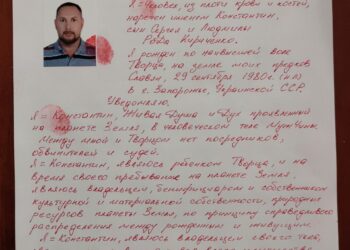 Я = Человек, из плоти крови и костей,
наречен именем Константин,
сын Сергея и Людмилы
Рода Кириченко.
Я рожден по наивысшей воле
Творца, на земле моих предков
Славян, 29 сентября 1980г. (н.л)
в г. Запорожье, Украинской ССР.
Уведомляю.
Я = Константин, Живая Душа и Дух проявленный
на планете Земля, в человеческом теле Мужчины.
Между мной и Творцом нет посредников,
обвинителей и судей.
Я = Константин, являюсь ребенком Творца, и на
время своего пребывания на планете Земля,
являюсь владельцем, бенефициаром и собственником
культурной и материальной собственности, природных
ресурсов планеты Земля, по принципу справедливого
распределения между рожденным и живущим.
Я = Константин являюсь владельцем своего тела,